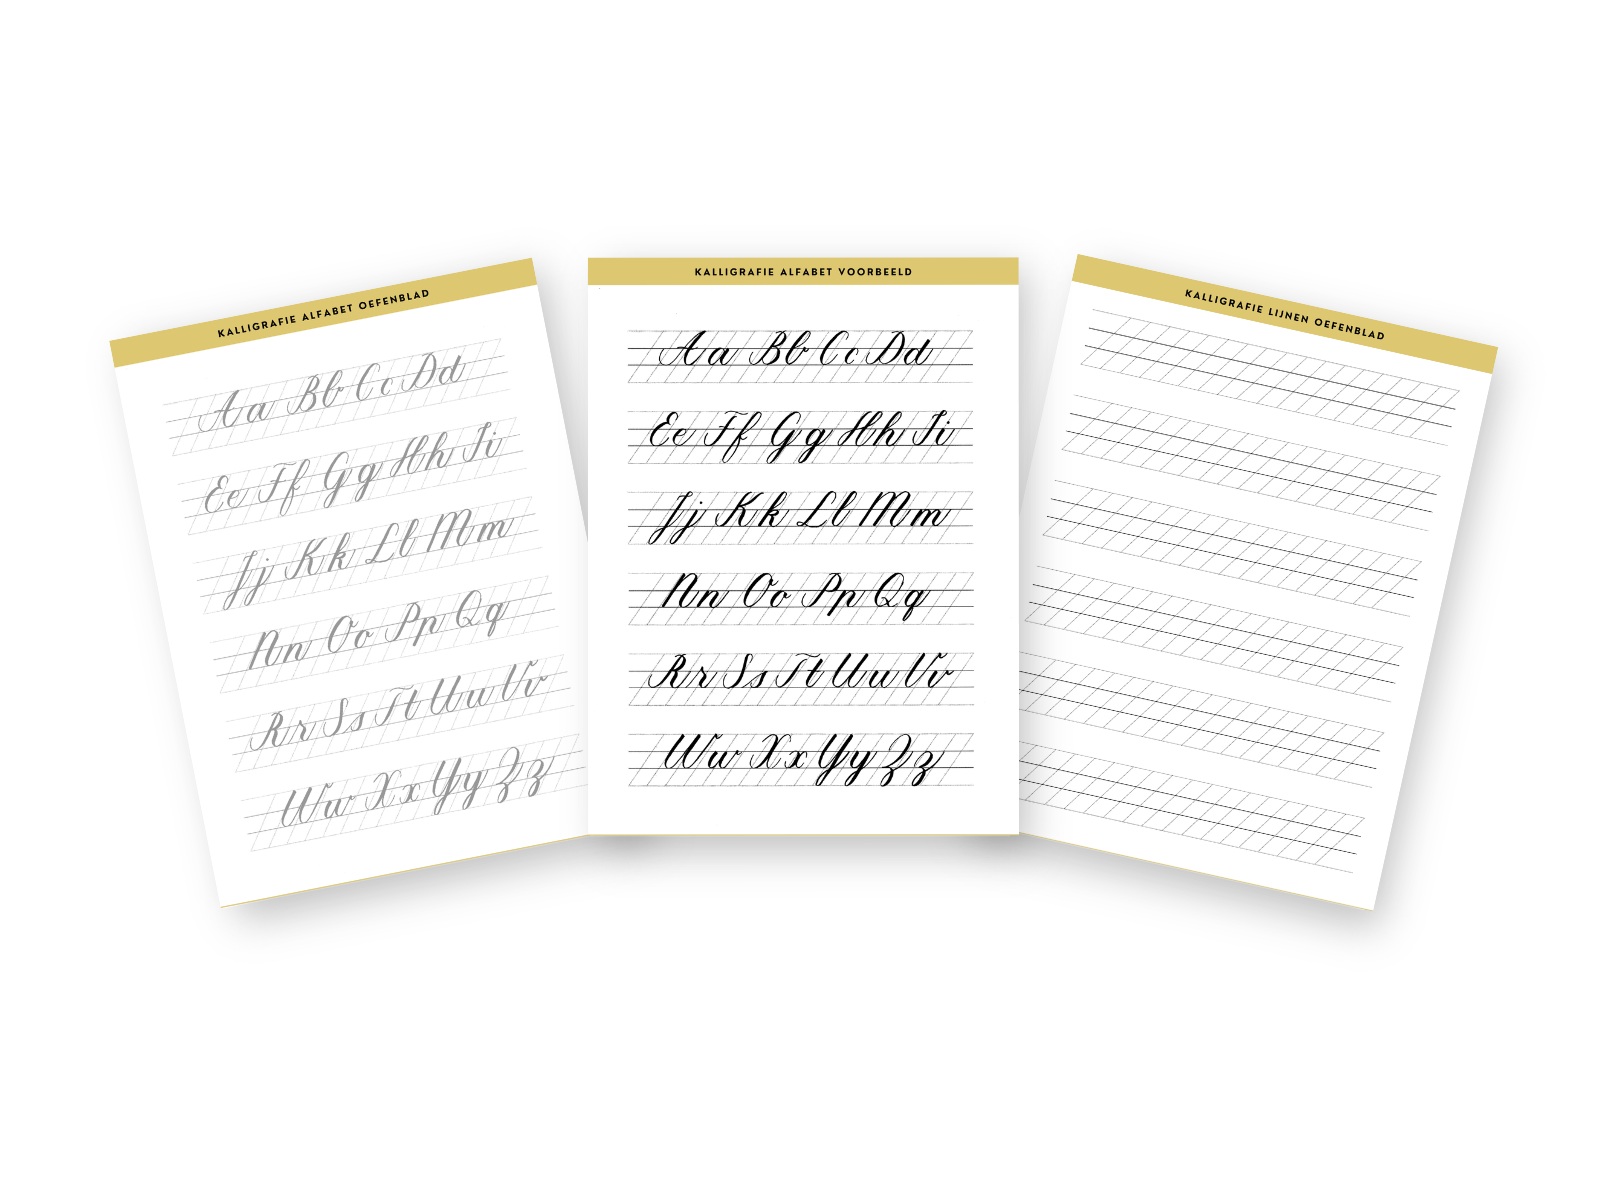 KALLIGRAFIE ALFABET OEFENBLAD
Aa Bb Cc Dd
Ee Ff Gg Hh Ii
Jj Kk Ll Mm
Nn Oo Pp Qq
Rr Ss Tt Uu Vv
Ww Xx Yy Zz
KALLIGRAFIE ALFABET VOORBEELD
Aa Bb Cc Dd
Ee Ff Gg Hh Ii
Jj Kk Ll Mm
Nn Oo Pp Qq
Rr Ss Tt Uu Vv
Ww Xx Yy Zz
KALLIGRAFIE LIJNEN OEFENBLAD